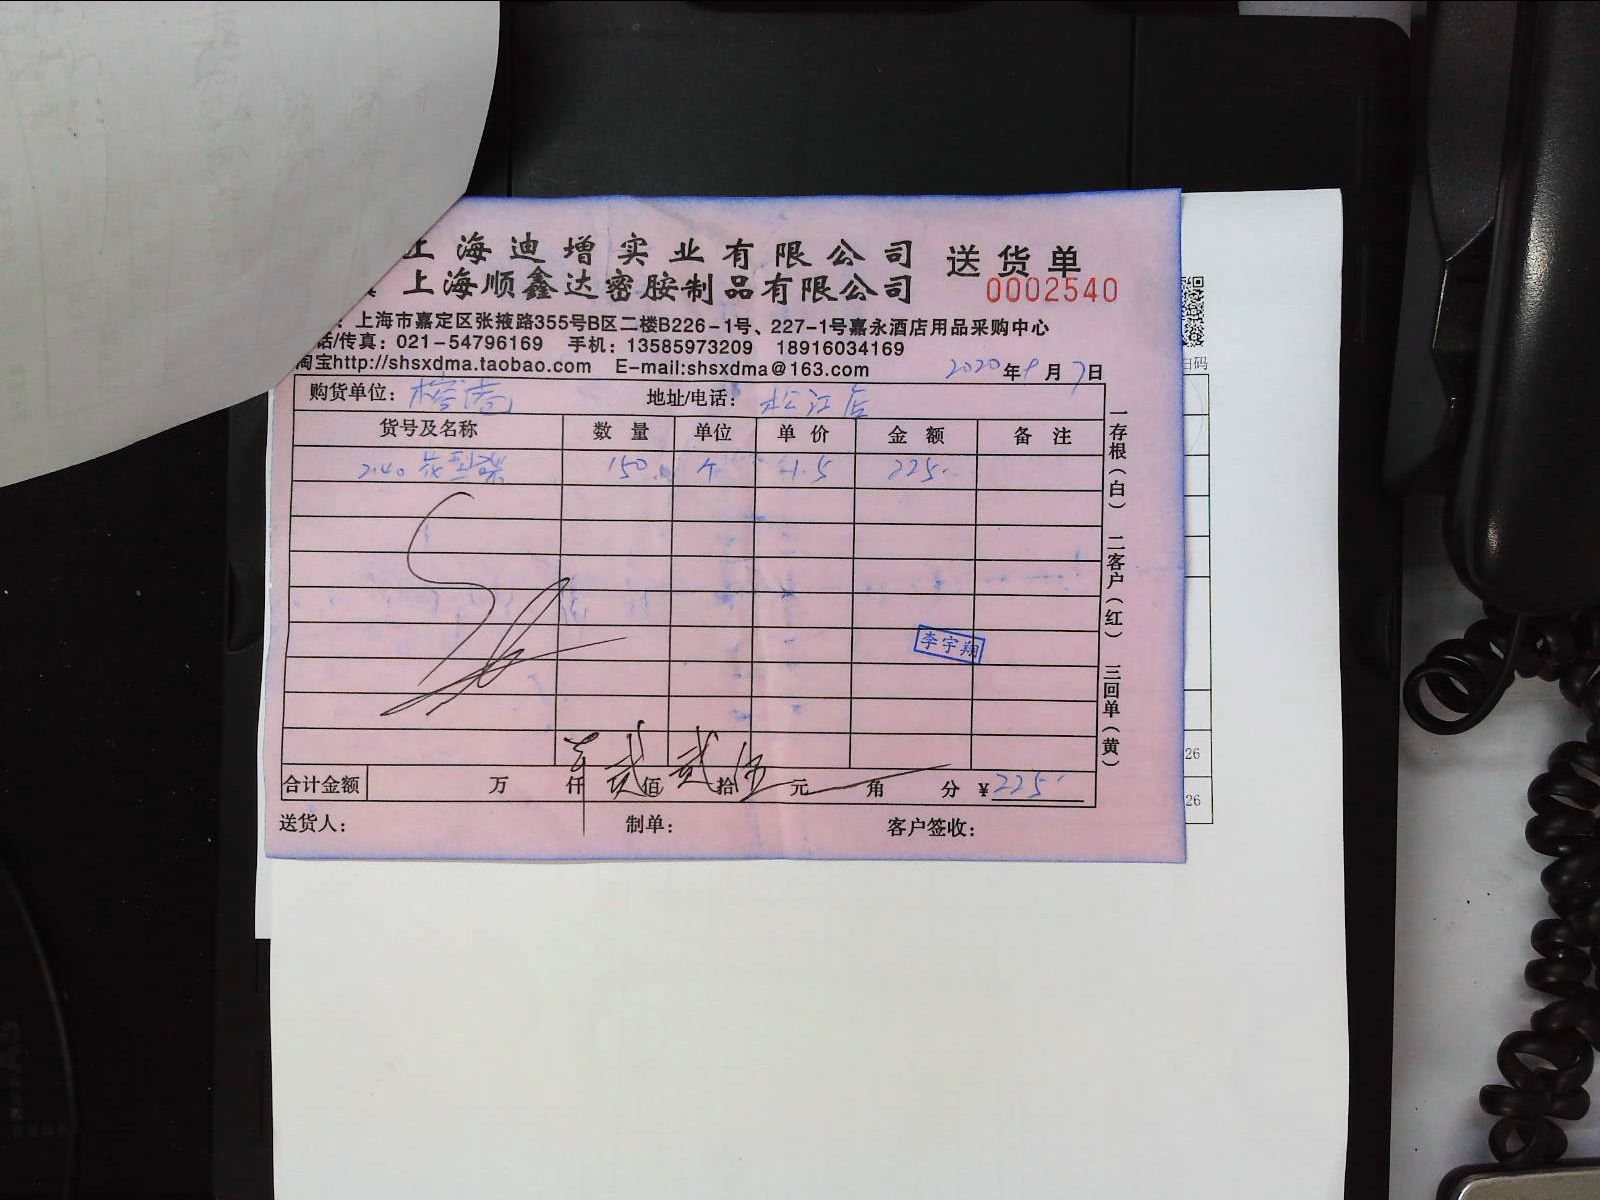 上海迪增实业有限公司 送货单
上海顺鑫达密胺制品有限公司 0002540
：上海市嘉定区张掖路355号B区二楼B226-1号、227-1号嘉永酒店用品采购中心
话/传真：021-54796169 手机：13585973209 18916034169
淘宝http://shsxdma.taobao.com E-mail:shsxdma@163.com 2020年9月7日
购货单位： 地址/电话：松江店
货号及名称 数量 单位 单价 金额 备注
240 150 个 1.5 225.
李宇翔
合计金额 万 仟 贰佰 贰拾伍元 角 分 ¥225.
送货人： 制单： 客户签收：
一存根（白） 二客户（红） 三回单（黄）
扫码
26
26